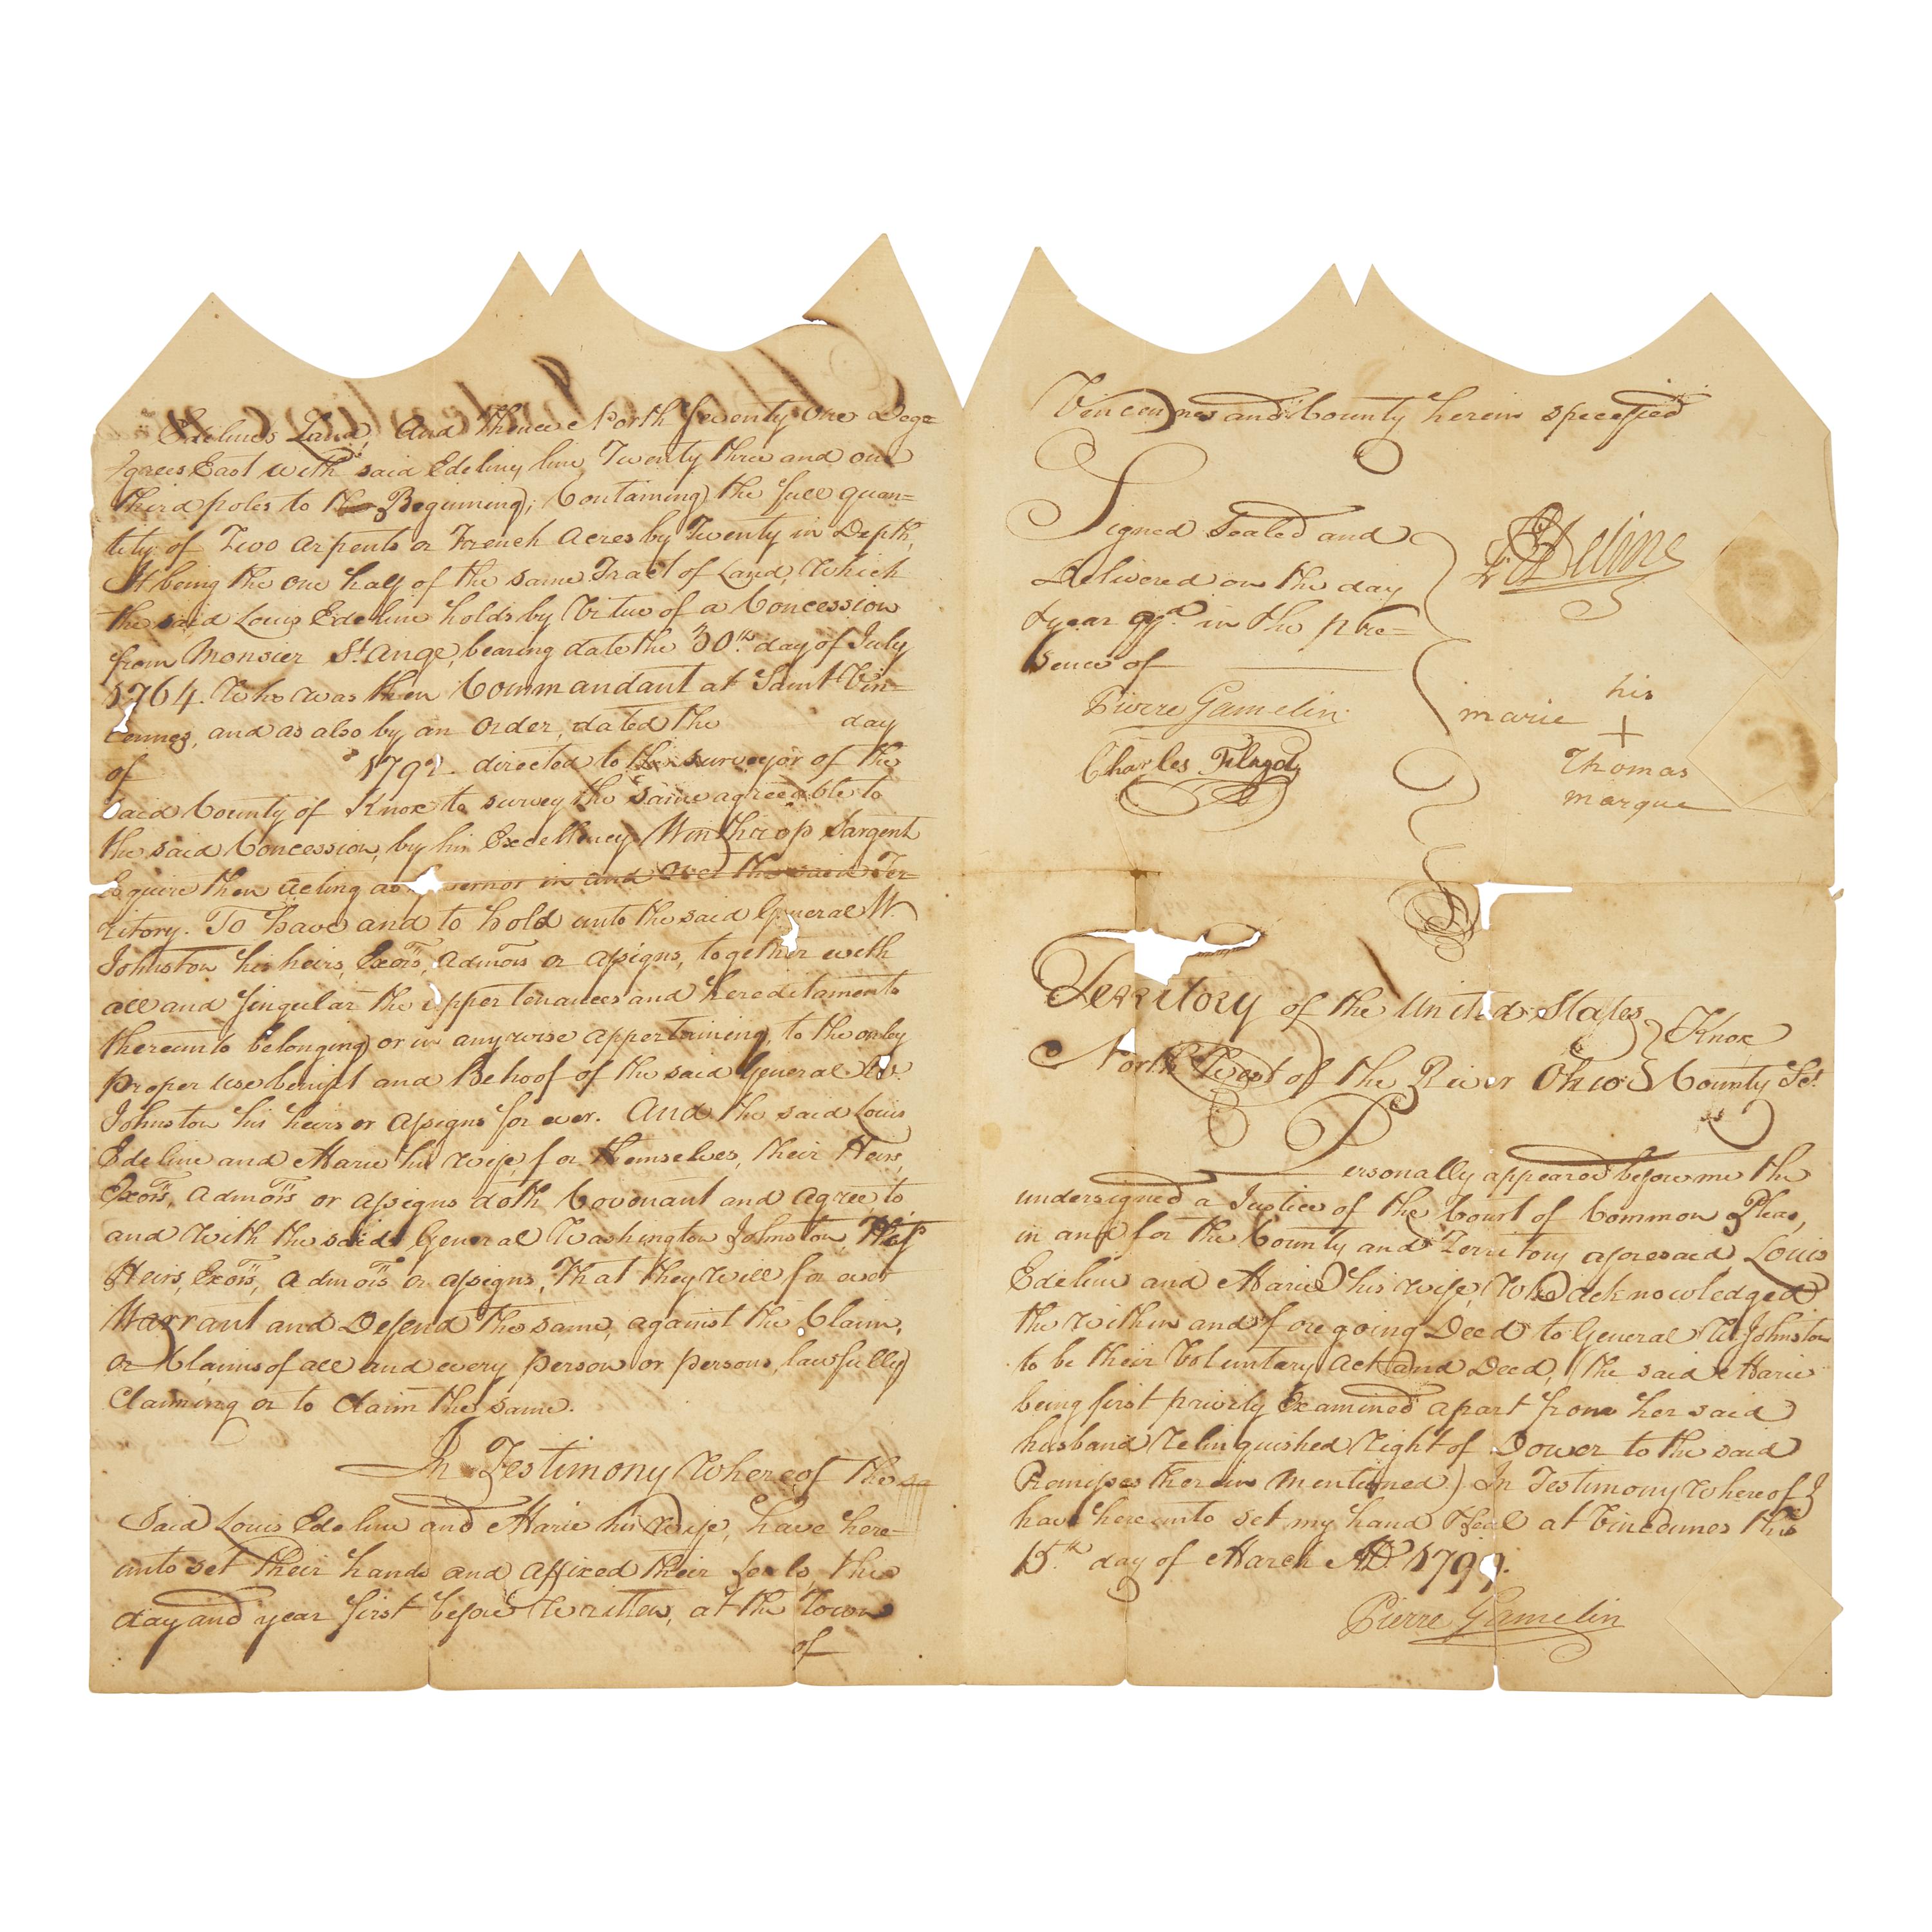 Edelines Land, And thence North seventy one Deg=
grees East with said Edelines line Twenty three and one
third poles to the Beginning, Containing the full quan=
tity of Two Arpents or French Acres by Twenty in Depth,
It being the one half of the same Tract of Land, Which
the said Louis Edeline holds by Virtue of a Concession
from Monsier St. Ange, bearing date the 30th. day of July
1764. Who was then Commandant at Saint Vin=
cennes, and as also by an Order, dated the day
of 1792. directed to the surveyor of the
said County of Knox to survey the same agreeable to
the said Concession, by his Excellency Winthrop Sargent
Esquire then acting as Governor in and over the said Ter=
ritory. To have and to hold unto the said General W.
Johnston his heirs, Exors, Admors or assigns, together with
all and singular the appertenances and hereditaments
thereunto belonging or in anywise appertaining, to the only
proper use benifit and Behoof of the said General W.
Johnston his heirs or assigns for ever. And the said Louis
Edeline and Marie his wife, for themselves, their Heirs,
Exors, Admors or assigns doth Covonant and agree, to,
and with the said General Washington Johnston, His
Heirs, Exors, Admors or assigns, That they will for ever
Warrant and Defend the same, against the Claim,
or Claims of all and every person or persons, lawfully
Claiming or to Claim the same.
In Testimony Whereof the
Said Louis Edeline and Marie his wife, have here-
unto set their hands and affixed their seals, the
day and year first before written, at the Town
of
Vencennes and County herein specefied
Signed Sealed and
Delivered on the day
& year afsd. in the pre=
sence of
Pierre Gamelin
Charles
L Edeline
his
marie +
Thomas
marque
Territory of the United States
North West of the River Ohio } Knox
County Sct.
Personally appeared before me the
undersigned a Justice of the Court of Common Pleas,
in and for the County and Territory aforesaid, Louis
Edeline and Marie his wife, Who acknowledged
the within and foregoing Deed to General W. Johnston
to be their Voluntary Act and Deed, the said Marie
being first privily Examined apart from her said
husband Relinquished Right of Dower to the said
Premises therein mentioned. In Testimony Whereof I
have hereunto set my hand & seal at Vincennes this
15th. day of March AD 1799.
Pierre Gamelin